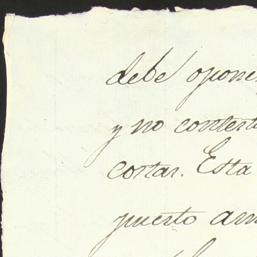 debe opone
y no contest
cortar. Esta
puerto am